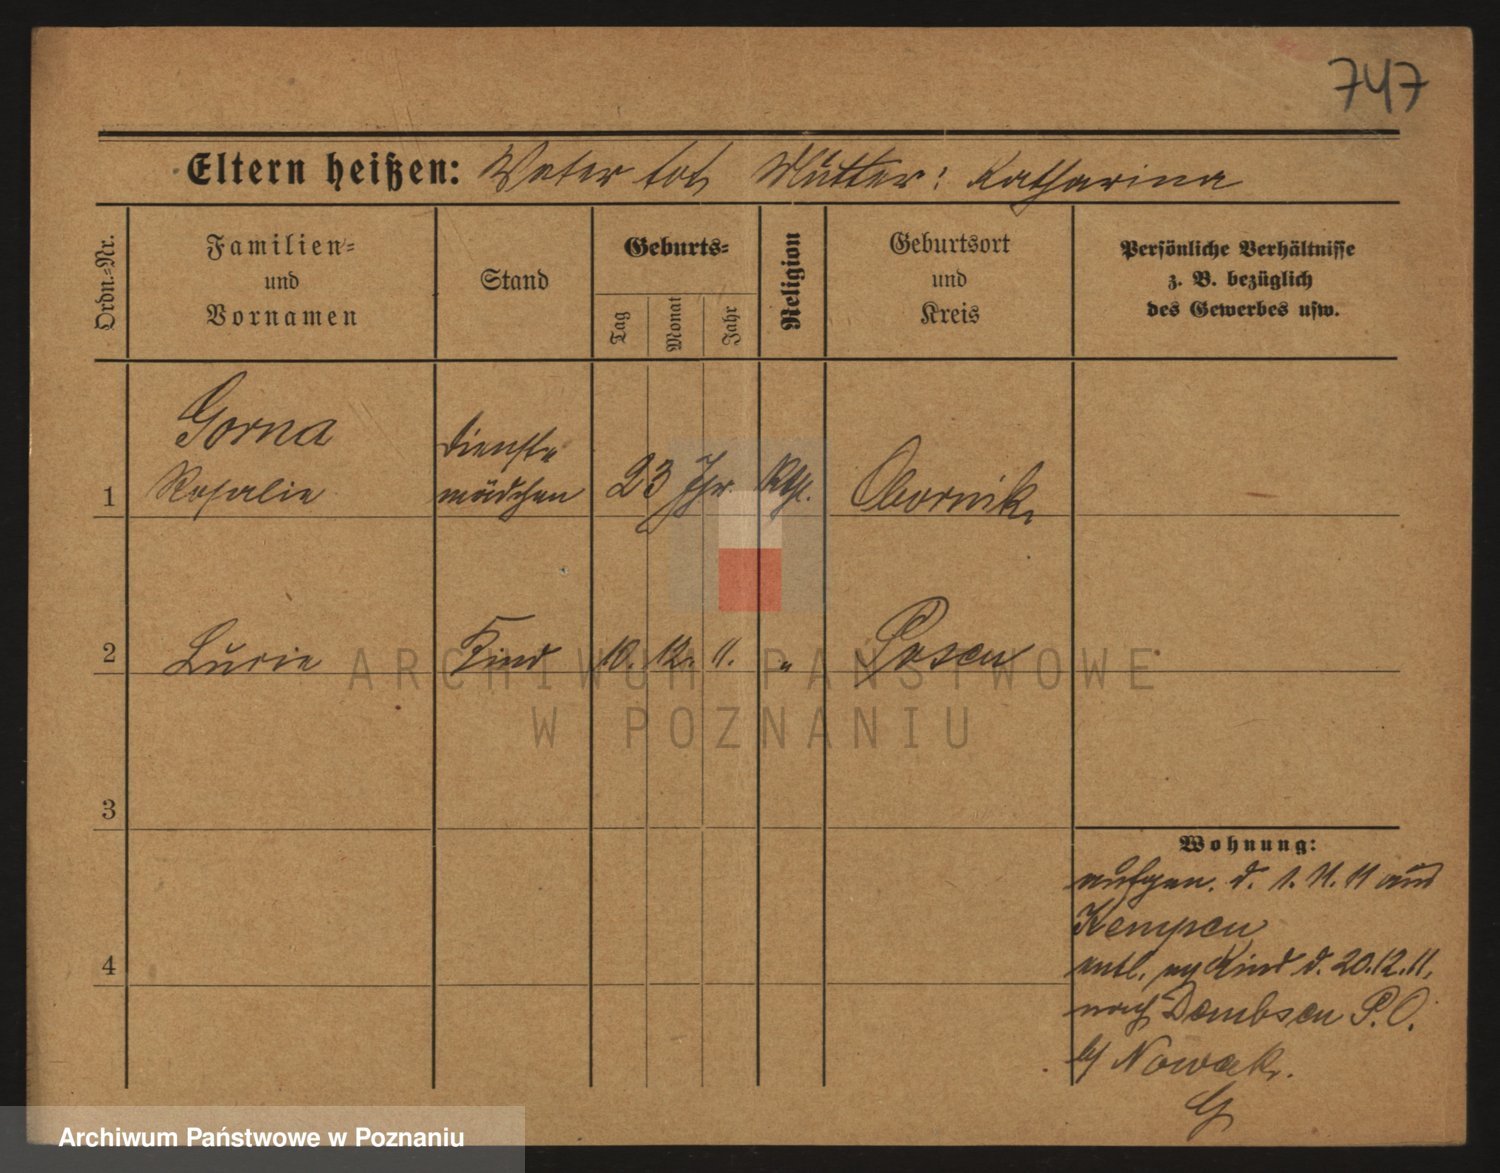 747
Eltern heißen: Vater tot, Mutter: Katharina
Ordn.-Nr.
Familien-
und
Vornamen
Stand
Geburts-
Tag
Monat
Jahr
Religion
Geburtsort
und
Kreis
Persönliche Verhältnisse
z. B. bezüglich
des Gewerbes usw.
Gorna
Rosalie
Dienst-
mädchen
23 Jhr.
Kth.
Obornik
1
2
Lucie
Kind
10. 12. 11.
"
Posen
3
4
Wohnung:
aufgen. d. 1. 11. 11 aus
Kempen
entl. Kind d. 20.12.11.
nach Dembsen P. O.
bei Nowak.
G
ARCHIWUM PAŃSTWOWE
W POZNANIU
Archiwum Państwowe w Poznaniu